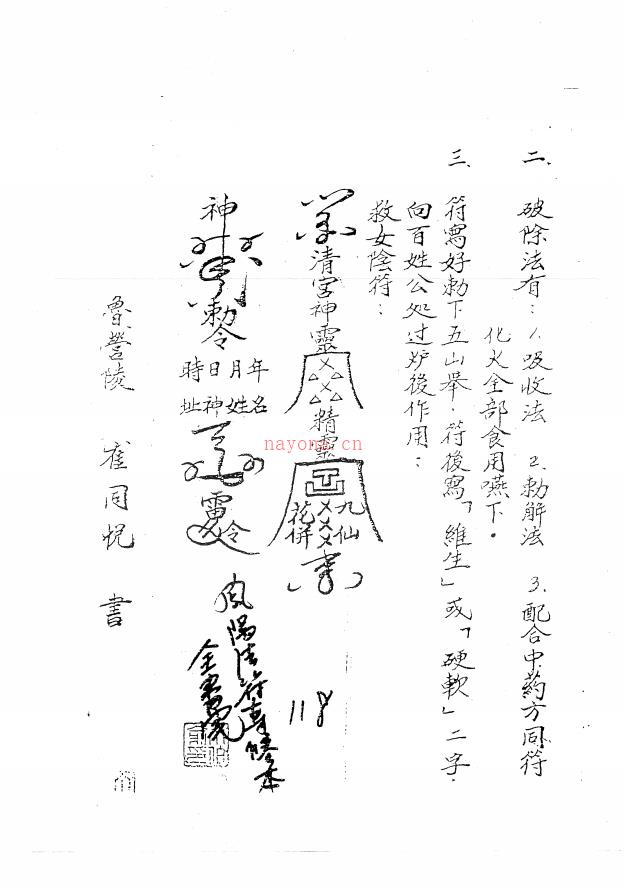 二、破除法有：1.吸收法 2.勅解法 3.配合中葯方同符
化火全部食用嚥下。
三、符寫好勅下五山舉．符後寫「維生」或「硬軟」二字．
向百姓公处过炉後作用：
救女陰符：
清宮神靈
精靈
九仙
花併
神
勅令
時日月年
址神姓名
雷令
鳳陽法符專謄本
118
魯營陵 崔同悅 書
nayona.cn